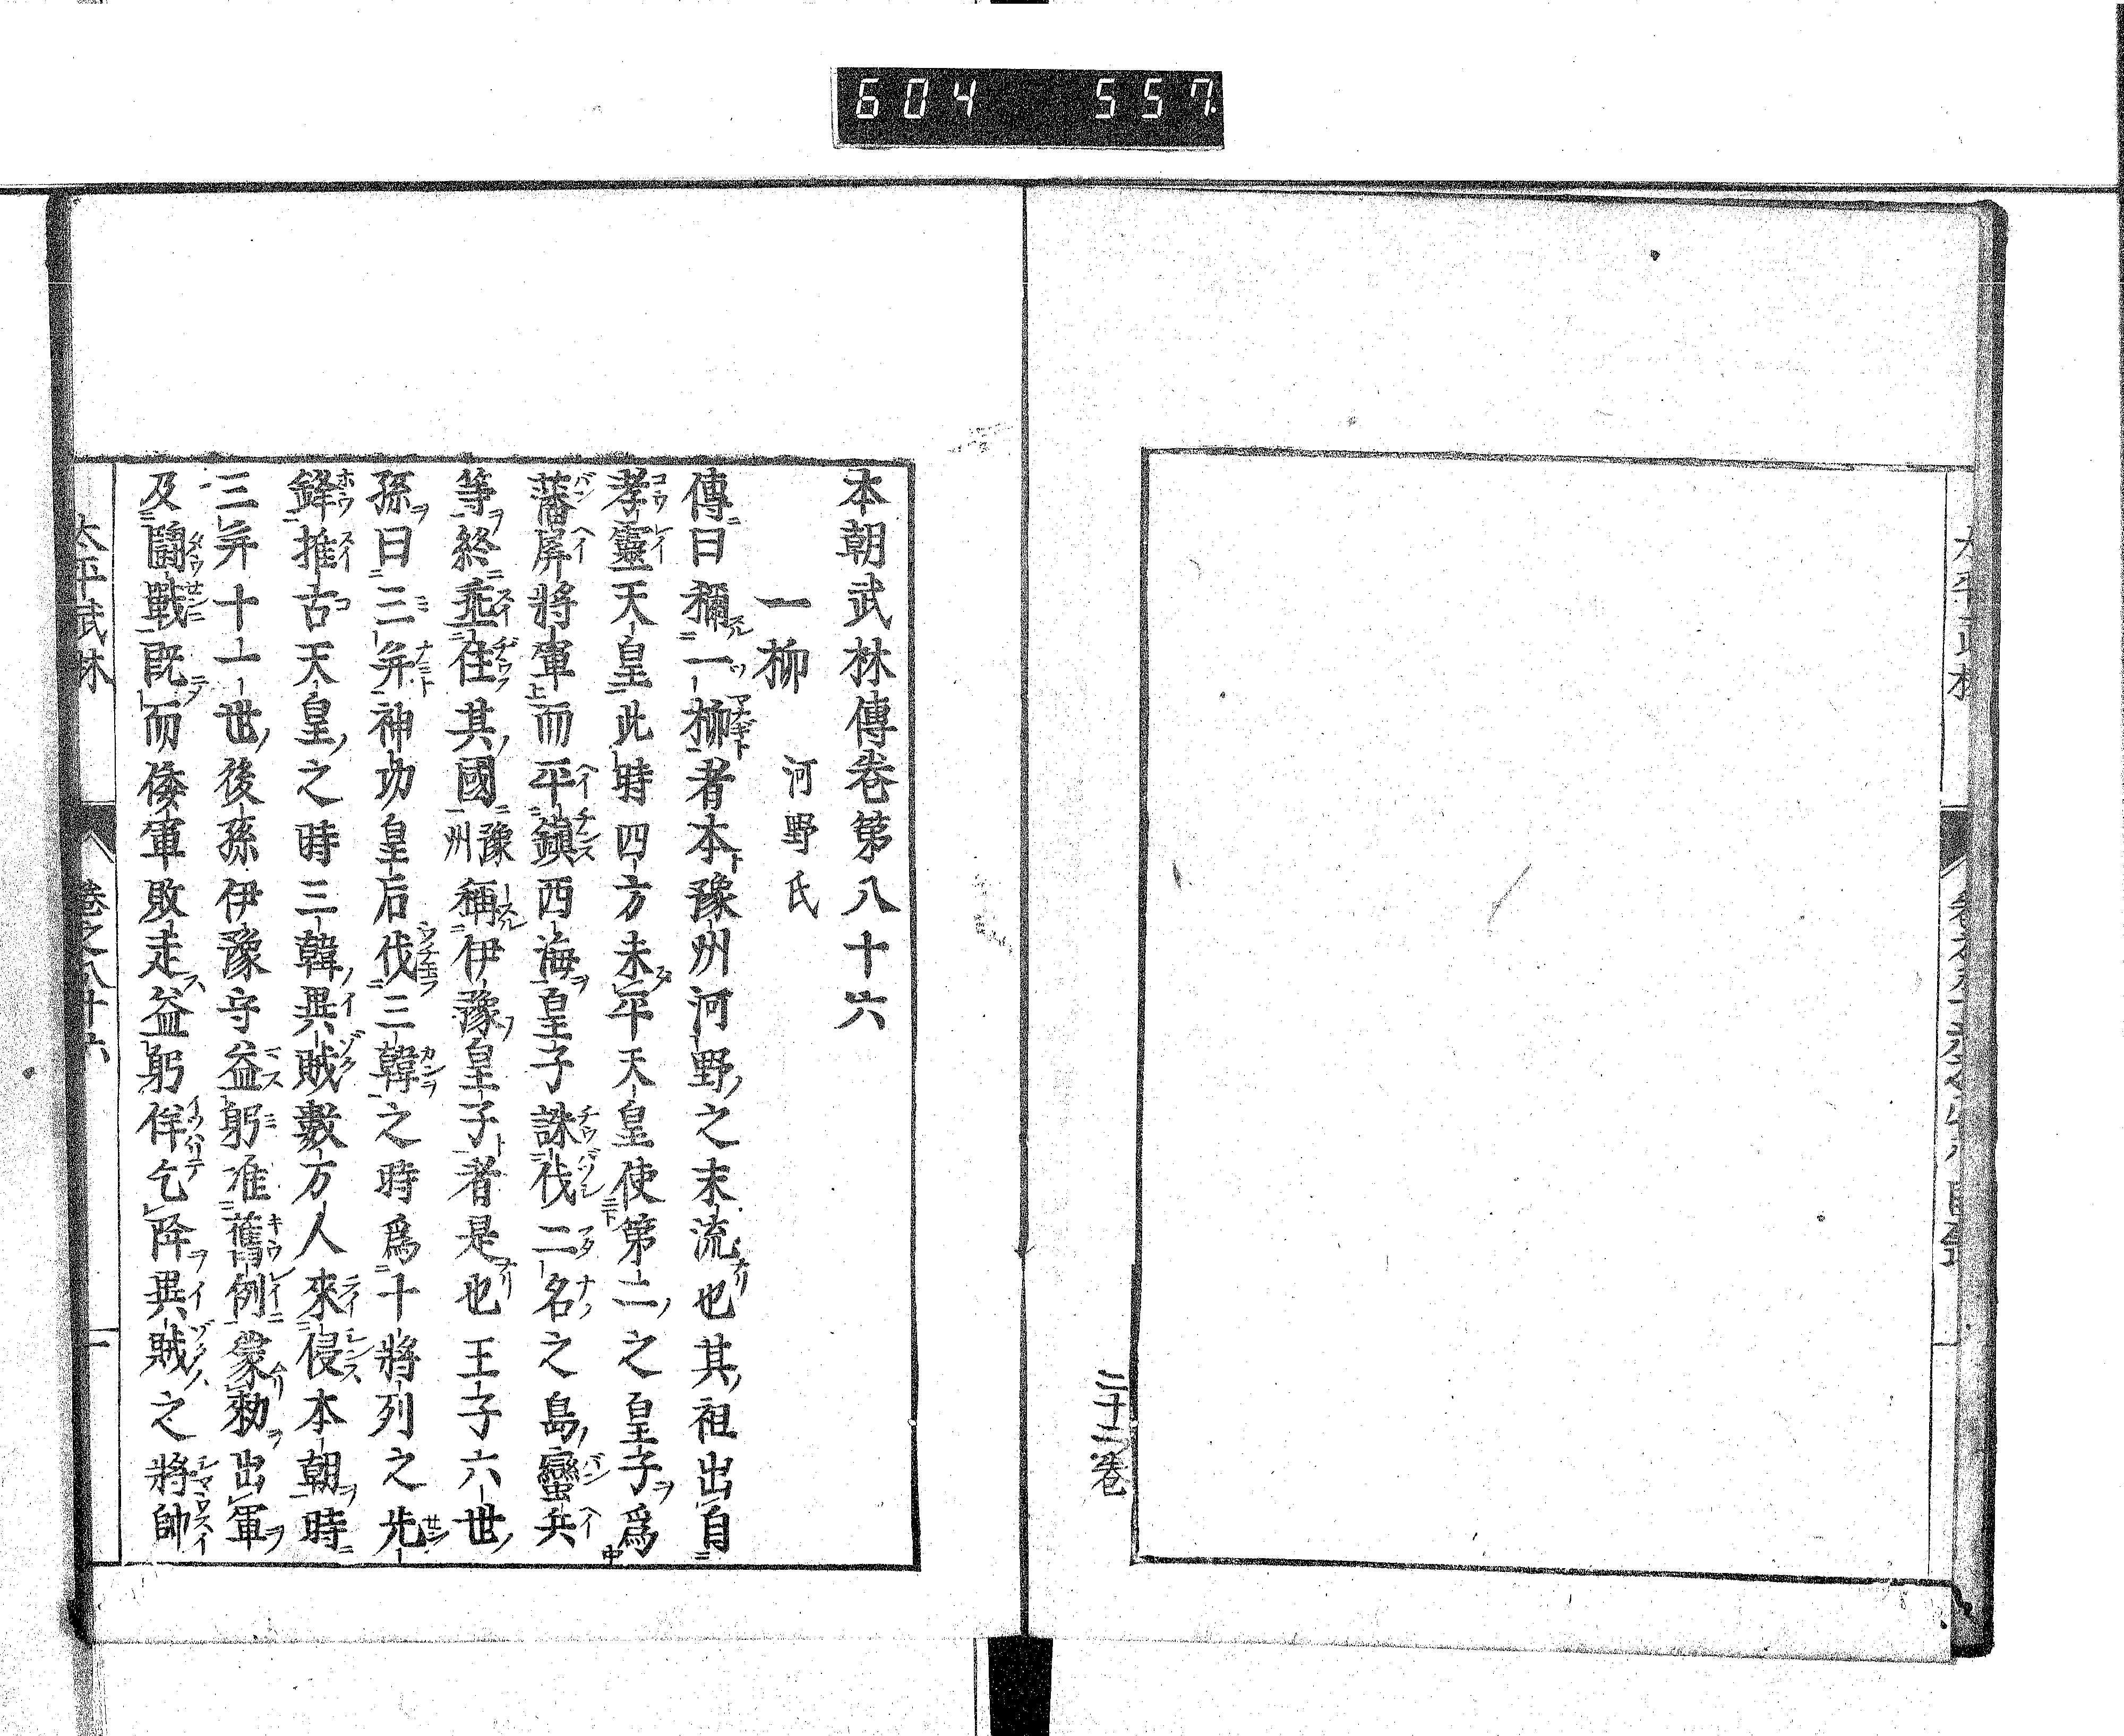 604 557
二十二卷
本朝武林傳卷第八十六
一柳 河野氏
傳曰稱一柳者本豫州河野之末流也其祖出自
孝靈天皇此時四方未平天皇使第二之皇子爲
藩屏將軍而平鎭西海皇子誅伐二名之島蠻兵
等終埀住其國豫州稱伊豫皇子者是也王子六世
孫曰三并神功皇后伐三韓之時爲十將列之先
鋒推古天皇之時三韓異賊數万人來侵本朝時
三并十一世後孫伊豫守益躬准舊例蒙勅出軍
及鬪戰既而倭軍敗走益躬佯乞降異賊之將帥
太平武林 卷之八十六 一